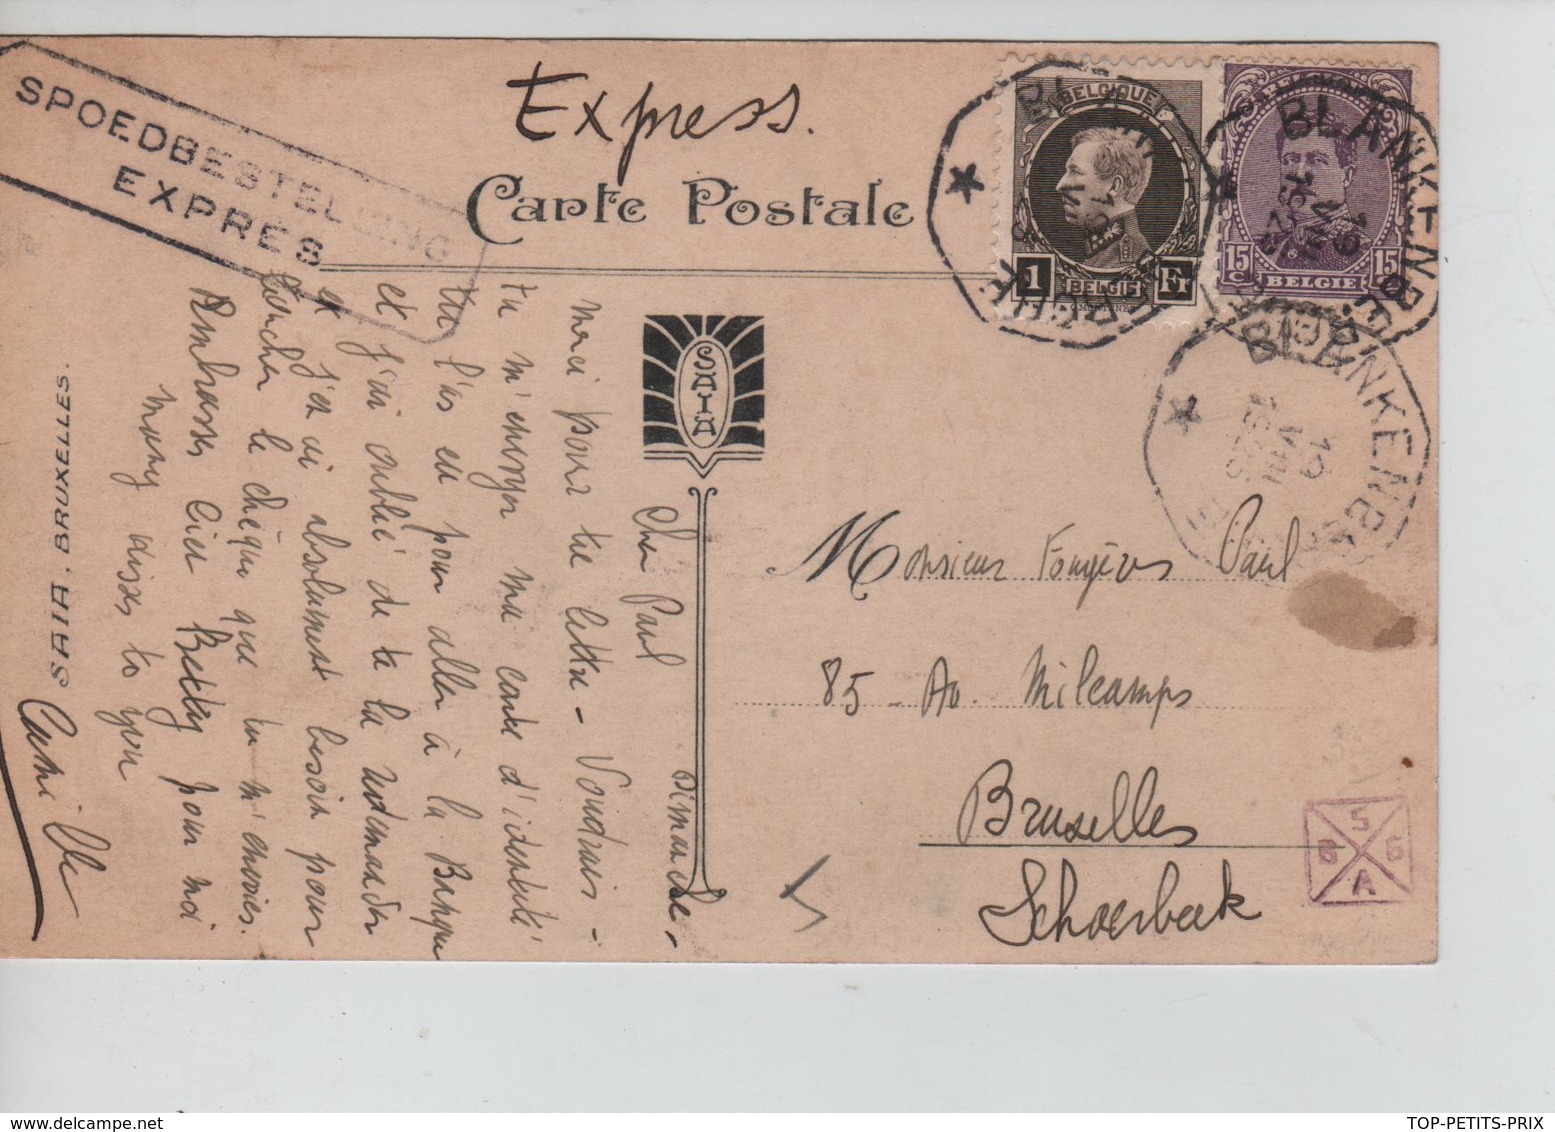 SPOEDBESTELLING
EXPRES
Express.
Carte Postale
BELGIQUE
1 Fr
BELGIË
15c 15c
BELGIE
BLANKENBERGHE
BLANKENBERGHE
BLANKENBERGHE
SAIA
Dimanche,
Cher Paul
Merci pour ta lettre - Voudrais-
tu m'envoyer ma carte d'identité
tu l'as eu pour aller à la Banque
et j'ai oublié de te la redemander
et j'en ai absolument besoin pour
toucher le chèque que tu m'envoies.
Embrasse bien Betty pour moi
many kisses to you
Camille
SAIA, BRUXELLES.
Monsieur Fougères Paul
85 - Av. Milcamps
Bruxelles
Schaerbeek
5
B 6
A
TOP-PETITS-PRIX